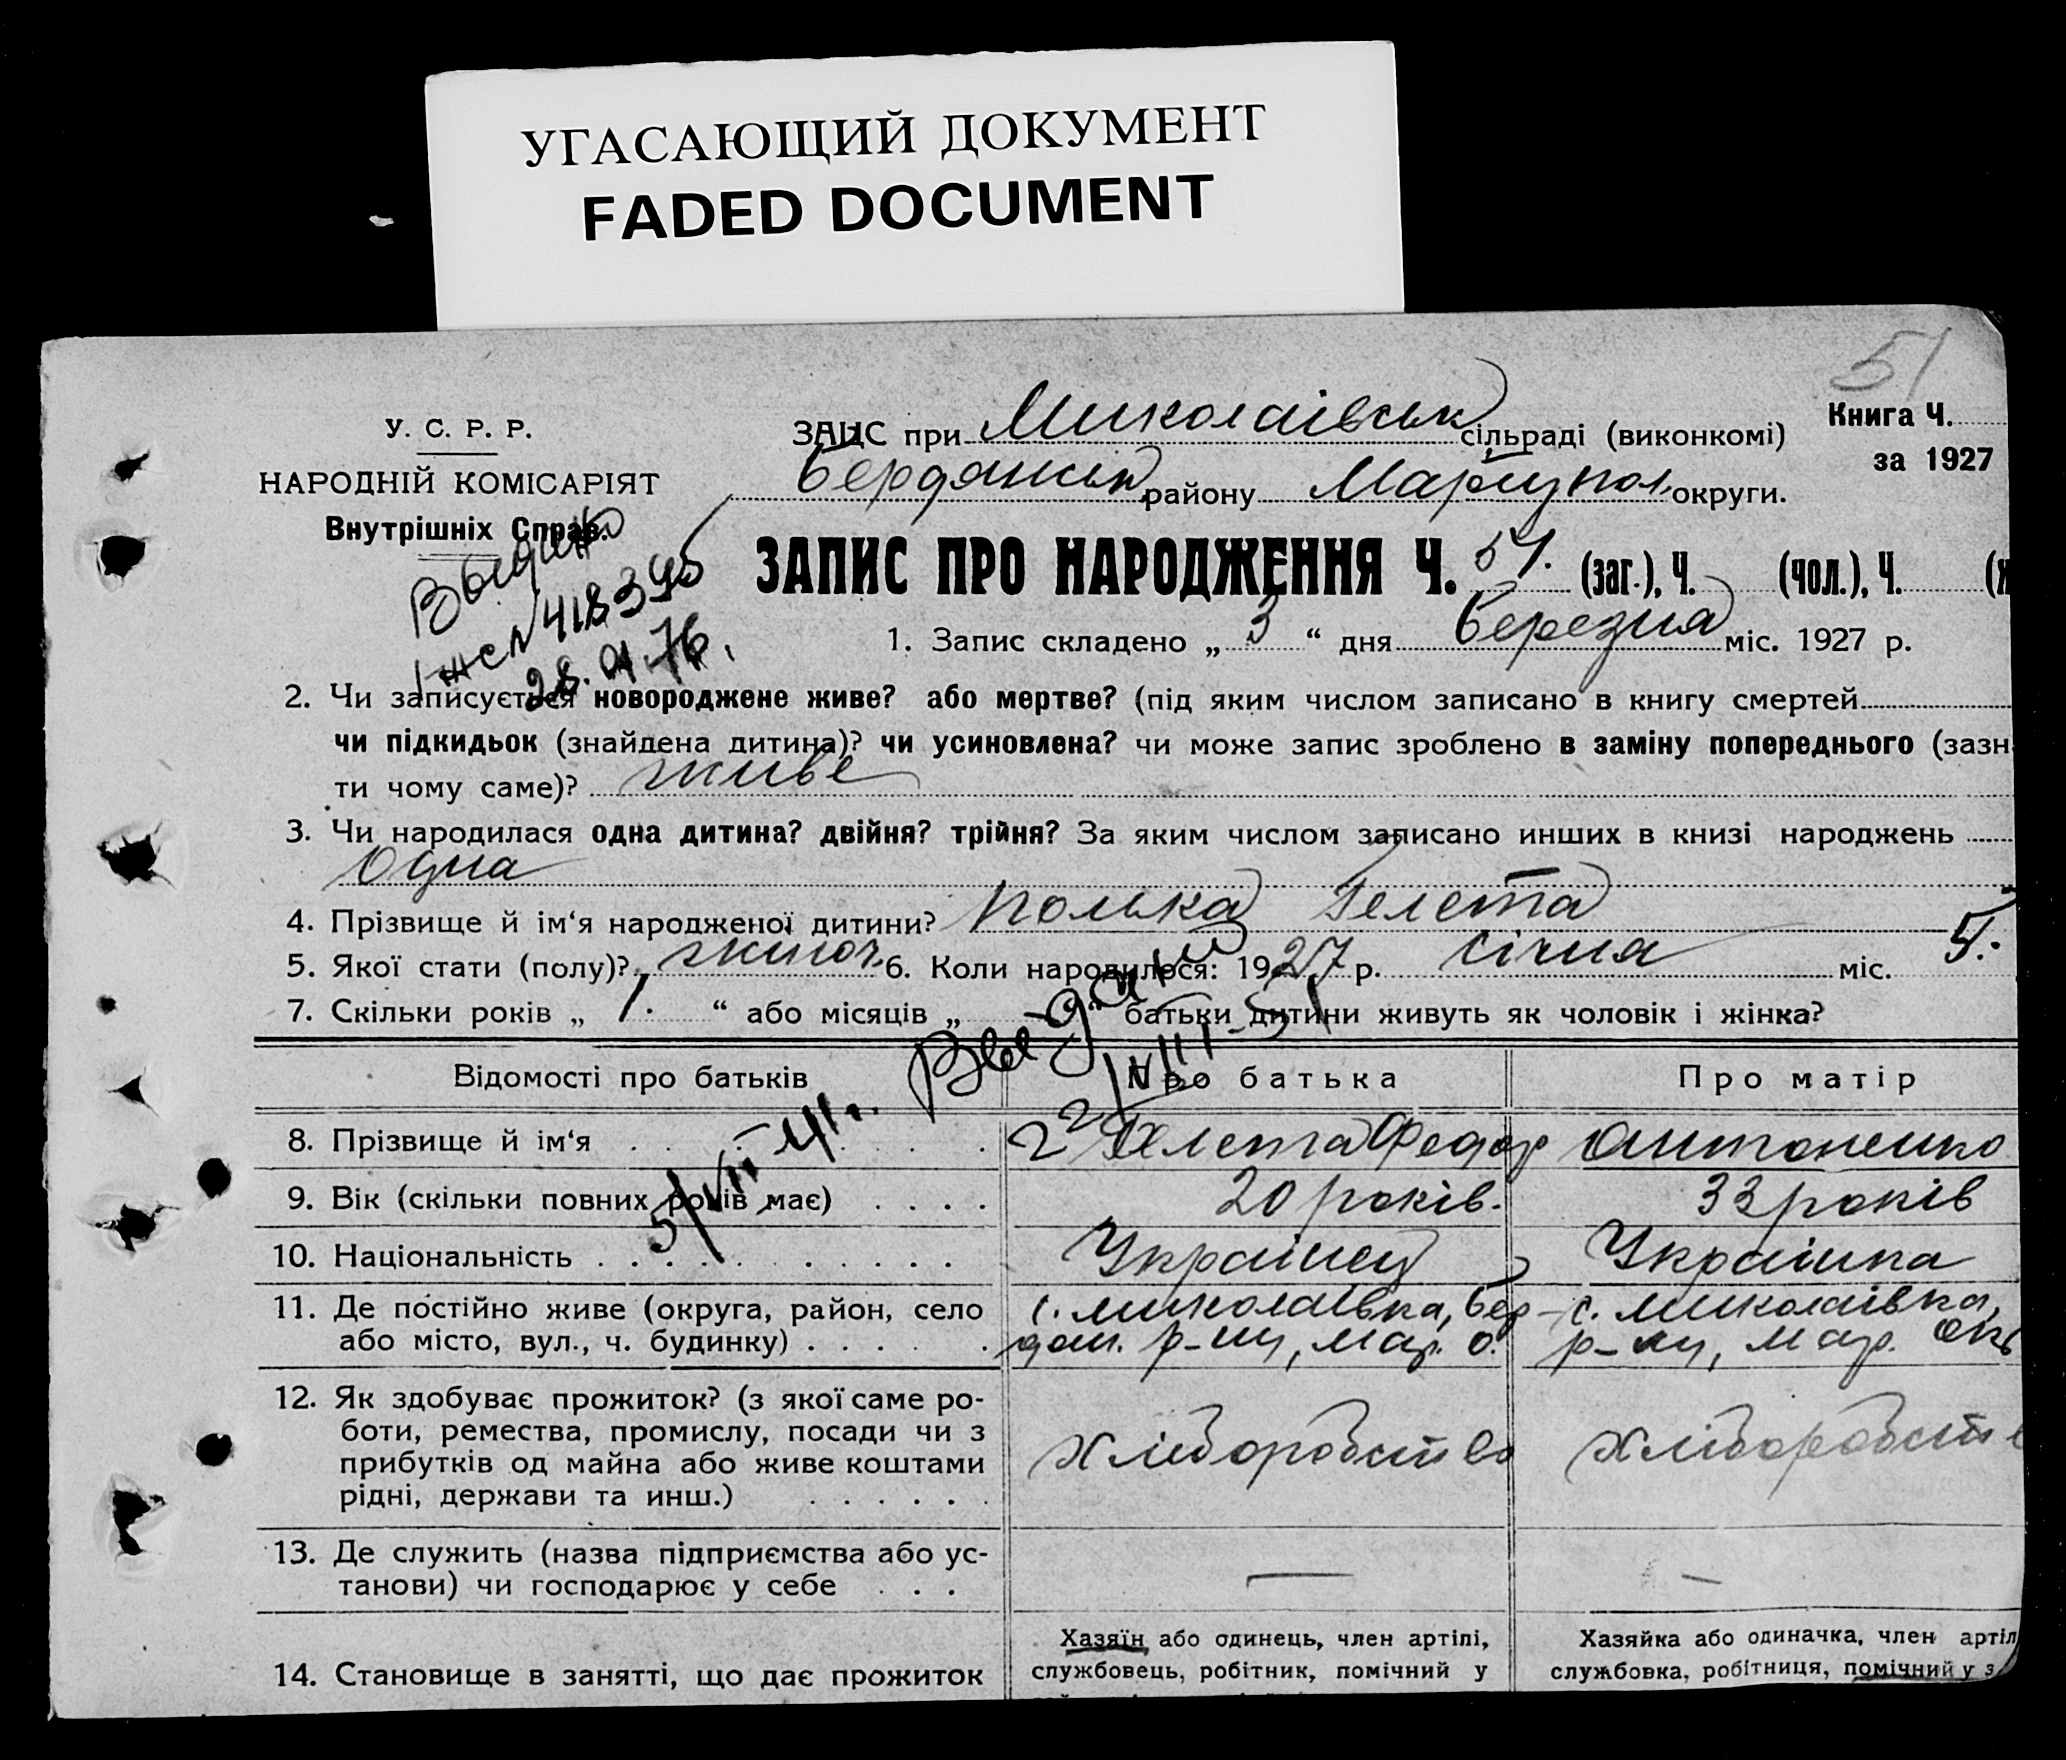 УГАСАЮЩИЙ ДОКУМЕНТ
FADED DOCUMENT
51
У. С. Р. Р.
НАРОДНІЙ КОМІСАРІЯТ
Внутрішніх Справ.
ЗАЦС при Миколаївськ сільраді (виконкомі)
Бердянськ району Маріупол. округи.
Книга Ч.
за 1927
Выдано
418395
28. 76.
ЗАПИС ПРО НАРОДЖЕННЯ Ч. 51. (заг.), Ч. (чол.), Ч.
1. Запис складено „ 3 “ дня березня міс. 1927 р.
2. Чи записується новороджене живе? або мертве? (під яким числом записано в книгу смертей
чи підкидьок (знайдена дитина)? чи усиновлена? чи може запис зроблено в заміну попереднього (зазн
ти чому саме)? живе
3. Чи народилася одна дитина? двійня? трійня? За яким числом записано инших в книзі народжень
одна
4. Прізвище й ім‘я народженої дитини? Полька Гелета
5. Якої стати (полу)? жіноч. 6. Коли народилося: 1927 р. січня міс. 5.
7. Скільки років „ 1. “ або місяців „ “ батьки дитини живуть як чоловік і жінка?
Відомості про батьків Про батька Про матір
8. Прізвище й ім‘я Гелета Федор Антоненко
9. Вік (скільки повних років має) 20 років. 33 років
10. Національність Українец Українка
11. Де постійно живе (округа, район, село с. Миколаівка, Бер- с. Миколаівка,
або місто, вул., ч. будинку) дян. р-ну, Мар. о. р-ну, Мар. ок
12. Як здобуває прожиток? (з якої саме ро-
боти, ремества, промислу, посади чи з
прибутків од майна або живе коштами
рідні, держави та инш.)
Хліборобство Хліборобств
13. Де служить (назва підприємства або ус-
танови) чи господарює у себе — —
14. Становище в занятті, що дає прожиток
Хазяїн або одинець, член артілі,
службовець, робітник, помічний у
Хазяйка або одиначка, член артіл
службовка, робітниця, помічний у з